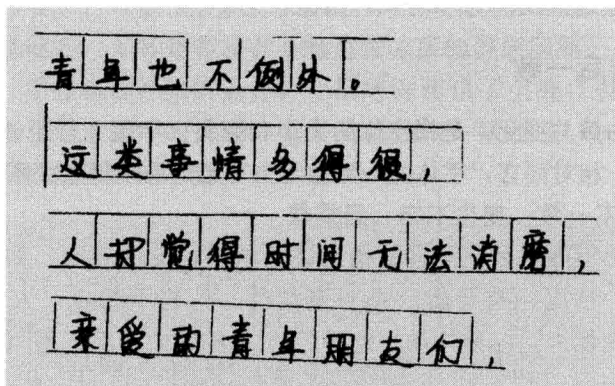 青年也不例外。
这类事情多得很,
人们觉得时间无法消磨,
亲爱的青年朋友们,